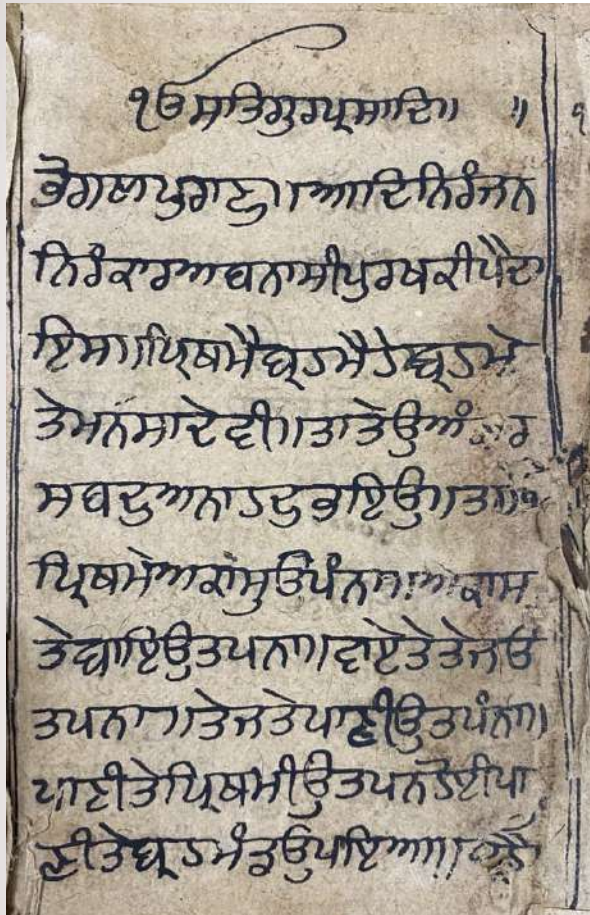 ੴ ਸਤਿਗੁਰਪ੍ਰਸਾਦਿ॥ ॥ ੧
ਭੋਗਲਪੁਰਾਣੁ॥ਆਦਿਨਿਰੰਜਨ
ਨਿਰੰਕਾਰਅਬਨਾਸੀਪੁਰਖਕੀਪੈਦਾ
ਇਸ॥ਪ੍ਰਿਥਮੈਬ੍ਰਹਮੈਹੈਬ੍ਰਹਮੇ
ਤੇਮਨਸਾਦੇਵੀ॥ਤਾਤੇਓੁਅੰ
ਸਬਦੁਅਨਾਹਦੁਭਇਓੁ॥
ਪ੍ਰਿਥਮੇਅਕਾਸੁਓਪੰਨਾ॥ਅਕਾਸ
ਤੇਬਾਇਓੁਤਪਨਾ॥ਵਾਏਤੇਤੇਜਓ
ਤਪਨਾ॥ਤੇਜਤੇਪਾਣੀਓੁਤਪੰਨਾ॥
ਪਾਣੀਤੇਪ੍ਰਿਥਮੀਓੁਤਪਨਹੋਈਪਾ
ਣੀਤੇਬ੍ਰਹਮੰਡੁਓੁਪਾਇਆ॥